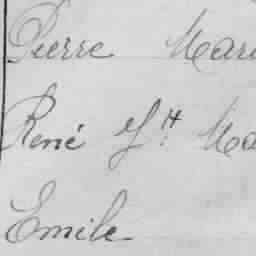 Pierre Mari
René Jh Ma
Emile